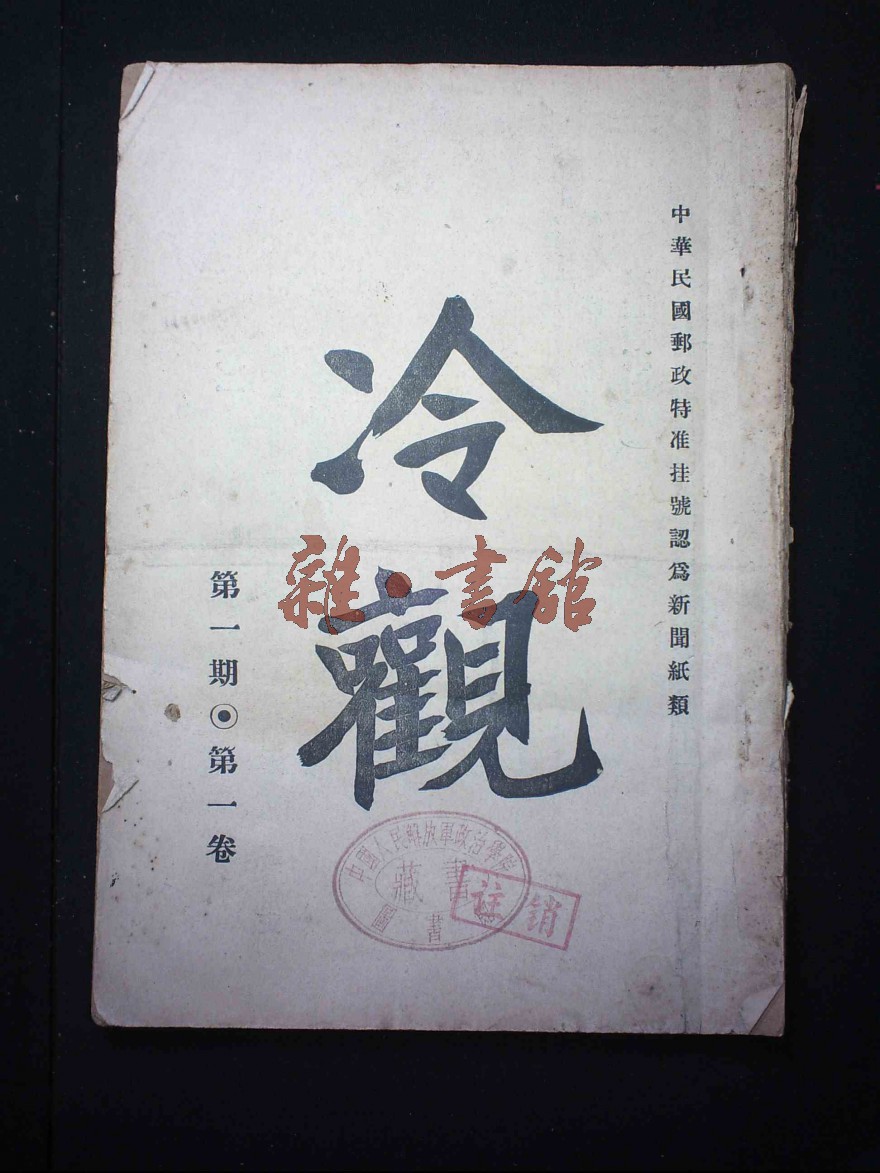 中華民國郵政特准挂號認爲新聞紙類
冷觀
第一期⊙第一卷
雜·書館
中國人民解放軍政治學院
藏書
圖書
註銷